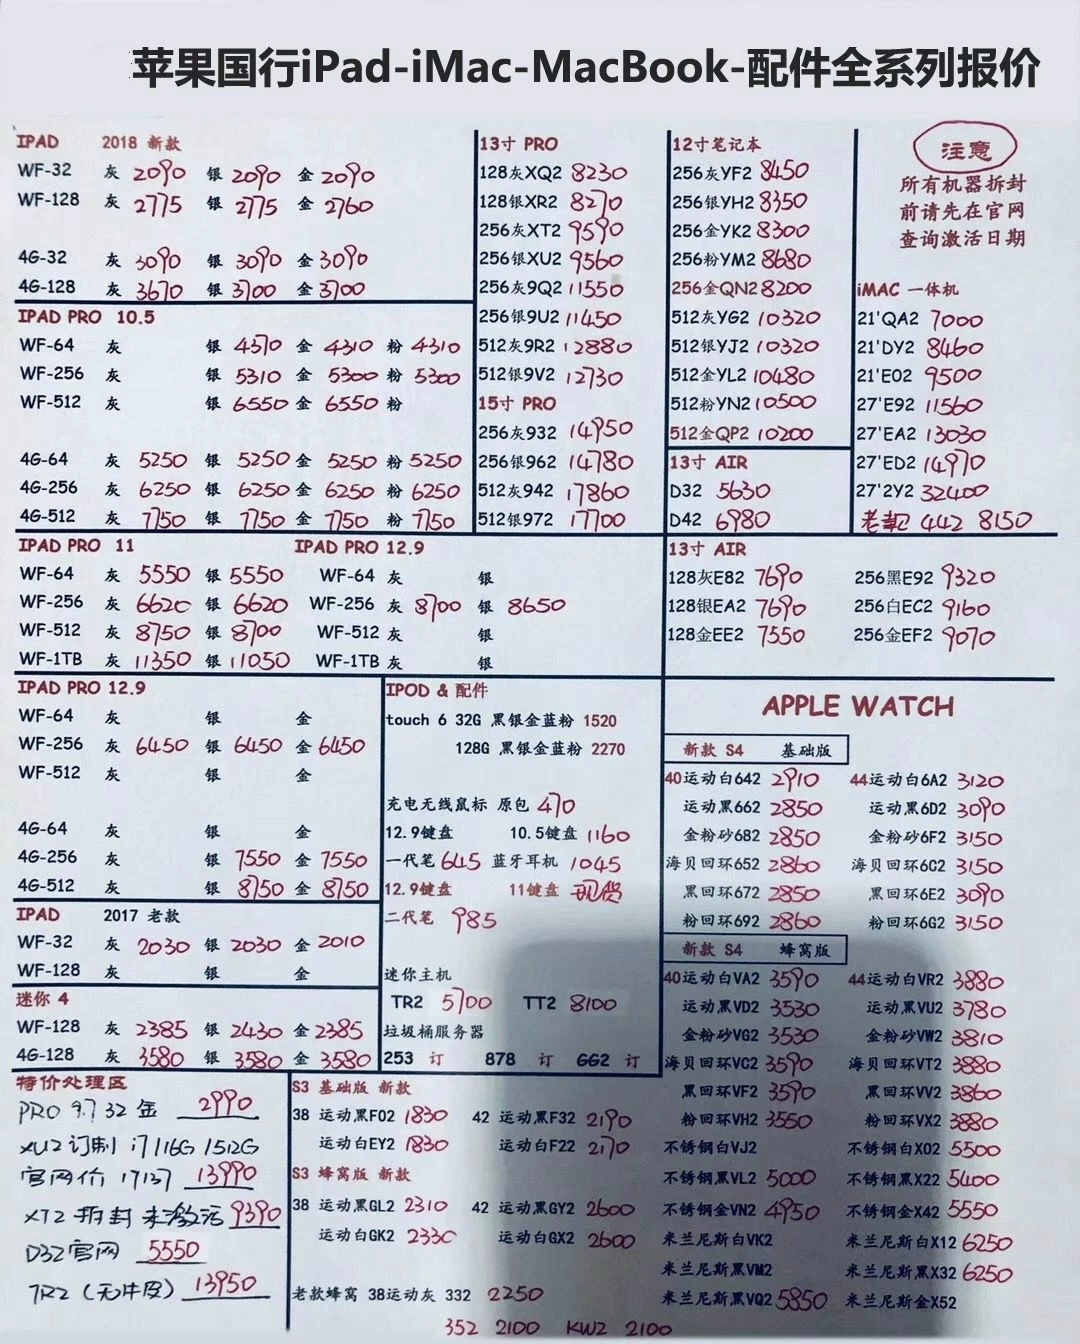 苹果国行iPad-iMac-MacBook-配件全系列报价
IPAD 2018 新款
WF-32 灰 2090 银 2090 金 2090
WF-128 灰 2775 银 2775 金 2760
4G-32 灰 3090 银 3090 金 3090
4G-128 灰 3670 银 3700 金 3700
IPAD PRO 10.5
WF-64 灰 银 4570 金 4310 粉 4310
WF-256 灰 银 5310 金 5300 粉 5300
WF-512 灰 银 6550 金 6550 粉
4G-64 灰 5250 银 5250 金 5250 粉 5250
4G-256 灰 6250 银 6250 金 6250 粉 6250
4G-512 灰 7750 银 7750 金 7750 粉 7750
13寸 PRO
128灰XQ2 8230
128银XR2 8270
256灰XT2 9590
256银XU2 9560
256灰9Q2 11550
256银9U2 11450
512灰9R2 12880
512银9V2 12730
15寸 PRO
256灰932 14950
256银962 14780
512灰942 17860
512银972 17700
12寸笔记本
256灰YF2 8450
256银YH2 8350
256金YK2 8300
256粉YM2 8680
256金QN2 8200
512灰YG2 10320
512银YJ2 10320
512金YL2 10480
512粉YN2 10500
512金QP2 10200
13寸 AIR
D32 5630
D42 6980
注意
所有机器拆封
前请先在官网
查询激活日期
iMAC 一体机
21'QA2 7000
21'DY2 8460
21'E02 9500
27'E92 11560
27'EA2 13030
27'ED2 14970
27'2Y2 32400
老款 442 8150
IPAD PRO 11
WF-64 灰 5550 银 5550
WF-256 灰 6620 银 6620
WF-512 灰 8750 银 8700
WF-1TB 灰 11350 银 11050
IPAD PRO 12.9
WF-64 灰 银
WF-256 灰 8700 银 8650
WF-512 灰 银
WF-1TB 灰 银
13寸 AIR
128灰E82 7690 256黑E92 9320
128银EA2 7690 256白EC2 9160
128金EE2 7550 256金EF2 9070
IPAD PRO 12.9
WF-64 灰 银 金
WF-256 灰 6450 银 6450 金 6450
WF-512 灰 银 金
4G-64 灰 银 金
4G-256 灰 银 7550 金 7550
4G-512 灰 银 8750 金 8750
IPAD 2017 老款
WF-32 灰 2030 银 2030 金 2010
WF-128 灰 银 金
迷你 4
WF-128 灰 2385 银 2430 金 2385
4G-128 灰 3580 银 3580 金 3580
IPOD & 配件
touch 6 32G 黑银金蓝粉 1520
128G 黑银金蓝粉 2270
充电无线鼠标 原包 470
12.9键盘 10.5键盘 1160
一代笔 645 蓝牙耳机 1045
12.9键盘 11键盘 现货
二代笔 985
迷你主机
TR2 5700 TT2 8100
垃圾桶服务器
253 订 878 订 GG2 订
APPLE WATCH
新款 S4 基础版
40运动白642 2910 44运动白6A2 3120
运动黑662 2850 运动黑6D2 3090
金粉砂682 2850 金粉砂6F2 3150
海贝回环652 2860 海贝回环6C2 3150
黑回环672 2850 黑回环6E2 3090
粉回环692 2860 粉回环6G2 3150
新款 S4 蜂窝版
40运动白VA2 3590 44运动白VR2 3880
运动黑VD2 3530 运动黑VU2 3780
金粉砂VG2 3530 金粉砂VW2 3810
海贝回环VC2 3590 海贝回环VT2 3880
黑回环VF2 3590 黑回环VV2 3860
粉回环VH2 3550 粉回环VX2 3880
不锈钢白VJ2 不锈钢白X02 5500
不锈钢黑VL2 5000 不锈钢黑X22 5400
不锈钢金VN2 4950 不锈钢金X42 5550
米兰尼斯白VK2 米兰尼斯白X12 6250
米兰尼斯黑VM2 米兰尼斯黑X32 6250
米兰尼斯黑VQ2 5850 米兰尼斯金X52
特价处理区
PRO 9.7 32 金 2990
XU2 订制 i7 116G 1512G
官网价 17137 13990
XT2 拆封 未激活 9390
D32官网 5550
TR2 (无牛皮) 13950
S3 基础版 新款
38 运动黑F02 1830 42 运动黑F32 2190
运动白EY2 1830 运动白F22 2170
S3 蜂窝版 新款
38 运动黑GL2 2310 42 运动黑GY2 2600
运动白GK2 2330 运动白GX2 2600
老款蜂窝 38运动灰 332 2250
352 2100 KW2 2100